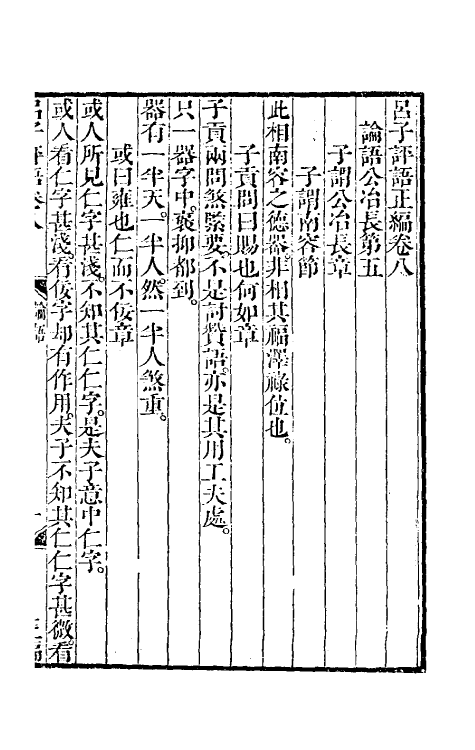 呂子評語正編卷八
論語公冶長第五
子謂公冶長章
子謂南容節
此相南容之德器。非相其福澤祿位也。
子貢問曰賜也何如章
子貢兩問煞緊要。不是討贊語。亦是其用工夫處。
只一器字中。褒抑都到。
器有一半天。一半人。然一半人煞重。
或曰雍也仁而不佞章
或人所見仁字甚淺。不知其仁仁字。是夫子意中仁字。
或人看仁字甚淺。看佞字却有作用。夫子不知其仁仁字甚微。看
呂子評語卷八 論語 一 正編